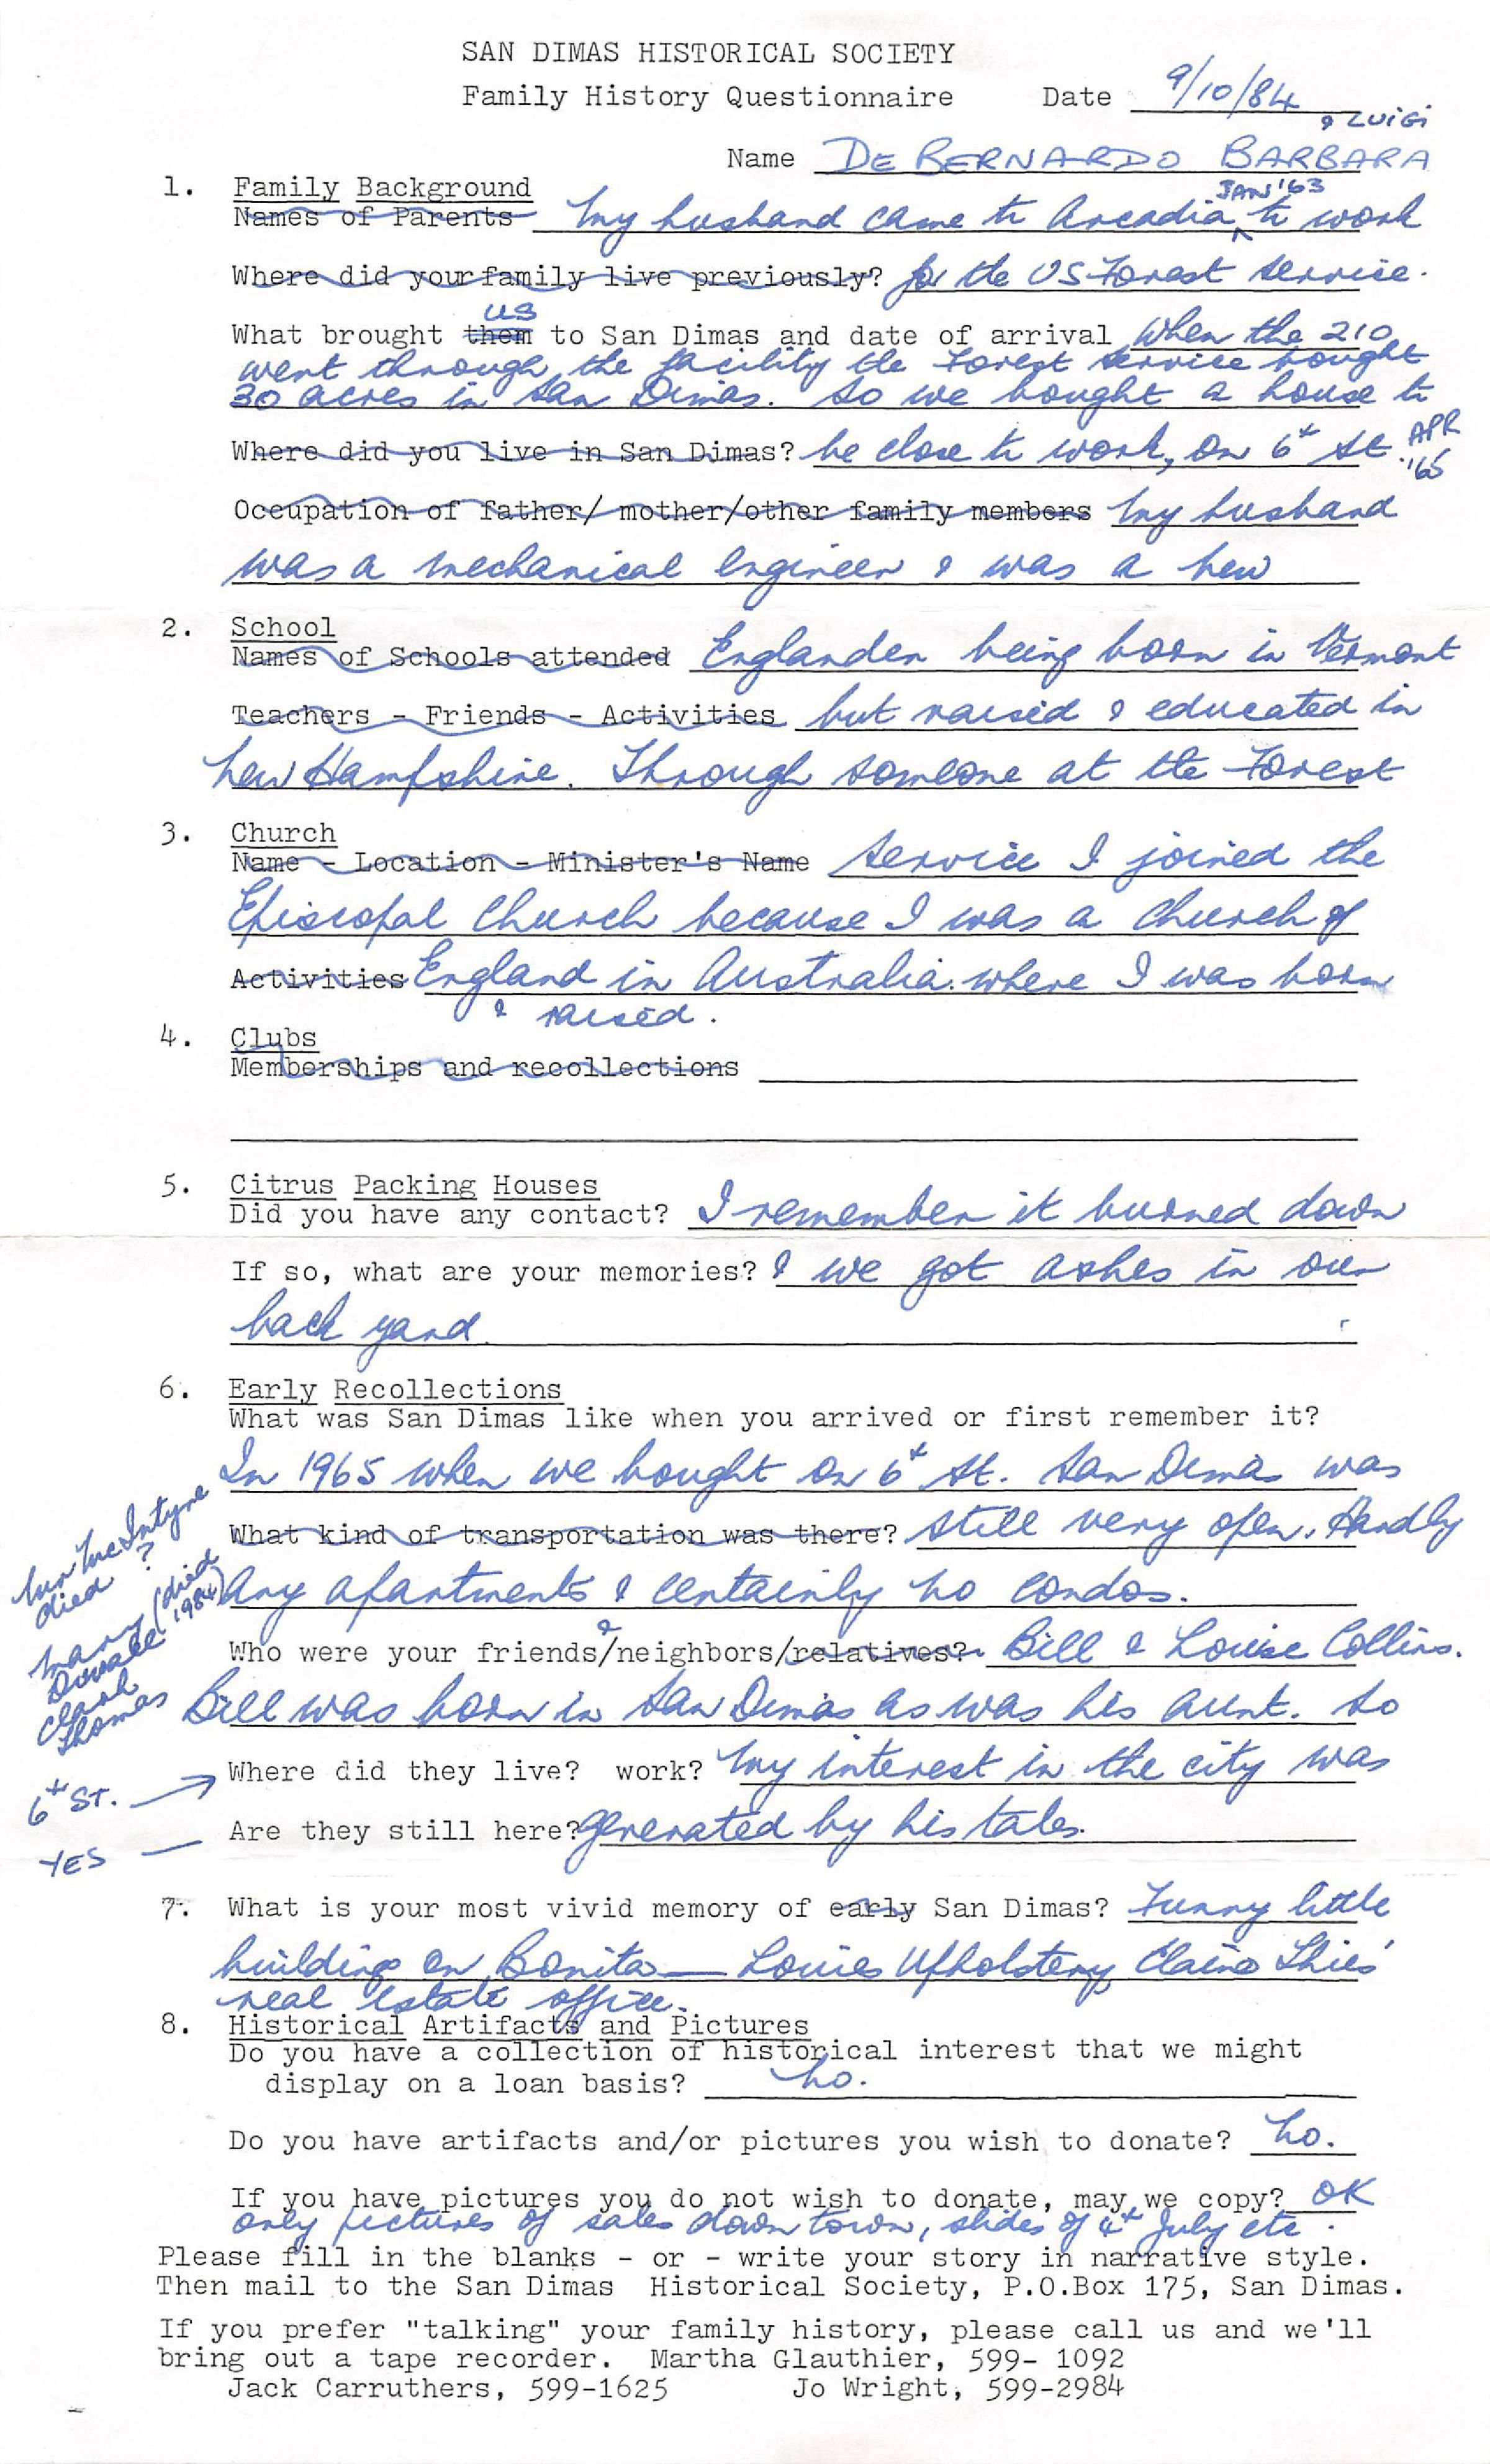 SAN DIMAS HISTORICAL SOCIETY
Family History Questionnaire Date 9/10/84
& LUIGI
Name DE BERNARDO BARBARA
1. Family Background
JAN '63
Names of Parents My husband came to Arcadia ^ to work
Where did your family live previously? for the US Forest Service.
us
What brought them to San Dimas and date of arrival When the 210
went through, the facility the Forest Service bought
30 acres in San Dimas. So we bought a house to
Where did you live in San Dimas? be close to work, on 6th St. APR '65
Occupation of father/ mother/other family members My husband
was a mechanical engineer & was a New
2. School
Names of Schools attended Englander being born in Vermont
Teachers - Friends - Activities but raised & educated in
New Hampshire. Through someone at the Forest
3. Church
Name - Location - Minister's Name Service I joined the
Episcopal Church because I was a Church of
Activities England in Australia where I was born
& raised.
4. Clubs
Memberships and recollections
5. Citrus Packing Houses
Did you have any contact? I remember it burned down
If so, what are your memories? & we got ashes in our
back yard
6. Early Recollections
What was San Dimas like when you arrived or first remember it?
In 1965 when we bought on 6th St. San Dimas was
What kind of transportation was there? still very open. Hardly
any apartments & certainly no condos.
McIntyre
died ?
Mary
(died
1984)
Clark
Thomas
Who were your friends/&neighbors/relatives? Bill & Louise Collins.
Bill was born in San Dimas as was his aunt. So
6th ST. → Where did they live? work? my interest in the city was
YES — Are they still here? generated by his tales.
7. What is your most vivid memory of early San Dimas? Funny little
buildings on Bonita — Louies Upholstery Elaine Shies'
real estate office.
8. Historical Artifacts and Pictures
Do you have a collection of historical interest that we might
display on a loan basis? No.
Do you have artifacts and/or pictures you wish to donate? No.
If you have pictures you do not wish to donate, may we copy? OK
only pictures of sales down town, slides of 4th July etc.
Please fill in the blanks - or - write your story in narrative style.
Then mail to the San Dimas Historical Society, P.O.Box 175, San Dimas.
If you prefer "talking" your family history, please call us and we'll
bring out a tape recorder. Martha Glauthier, 599- 1092
Jack Carruthers, 599-1625 Jo Wright, 599-2984